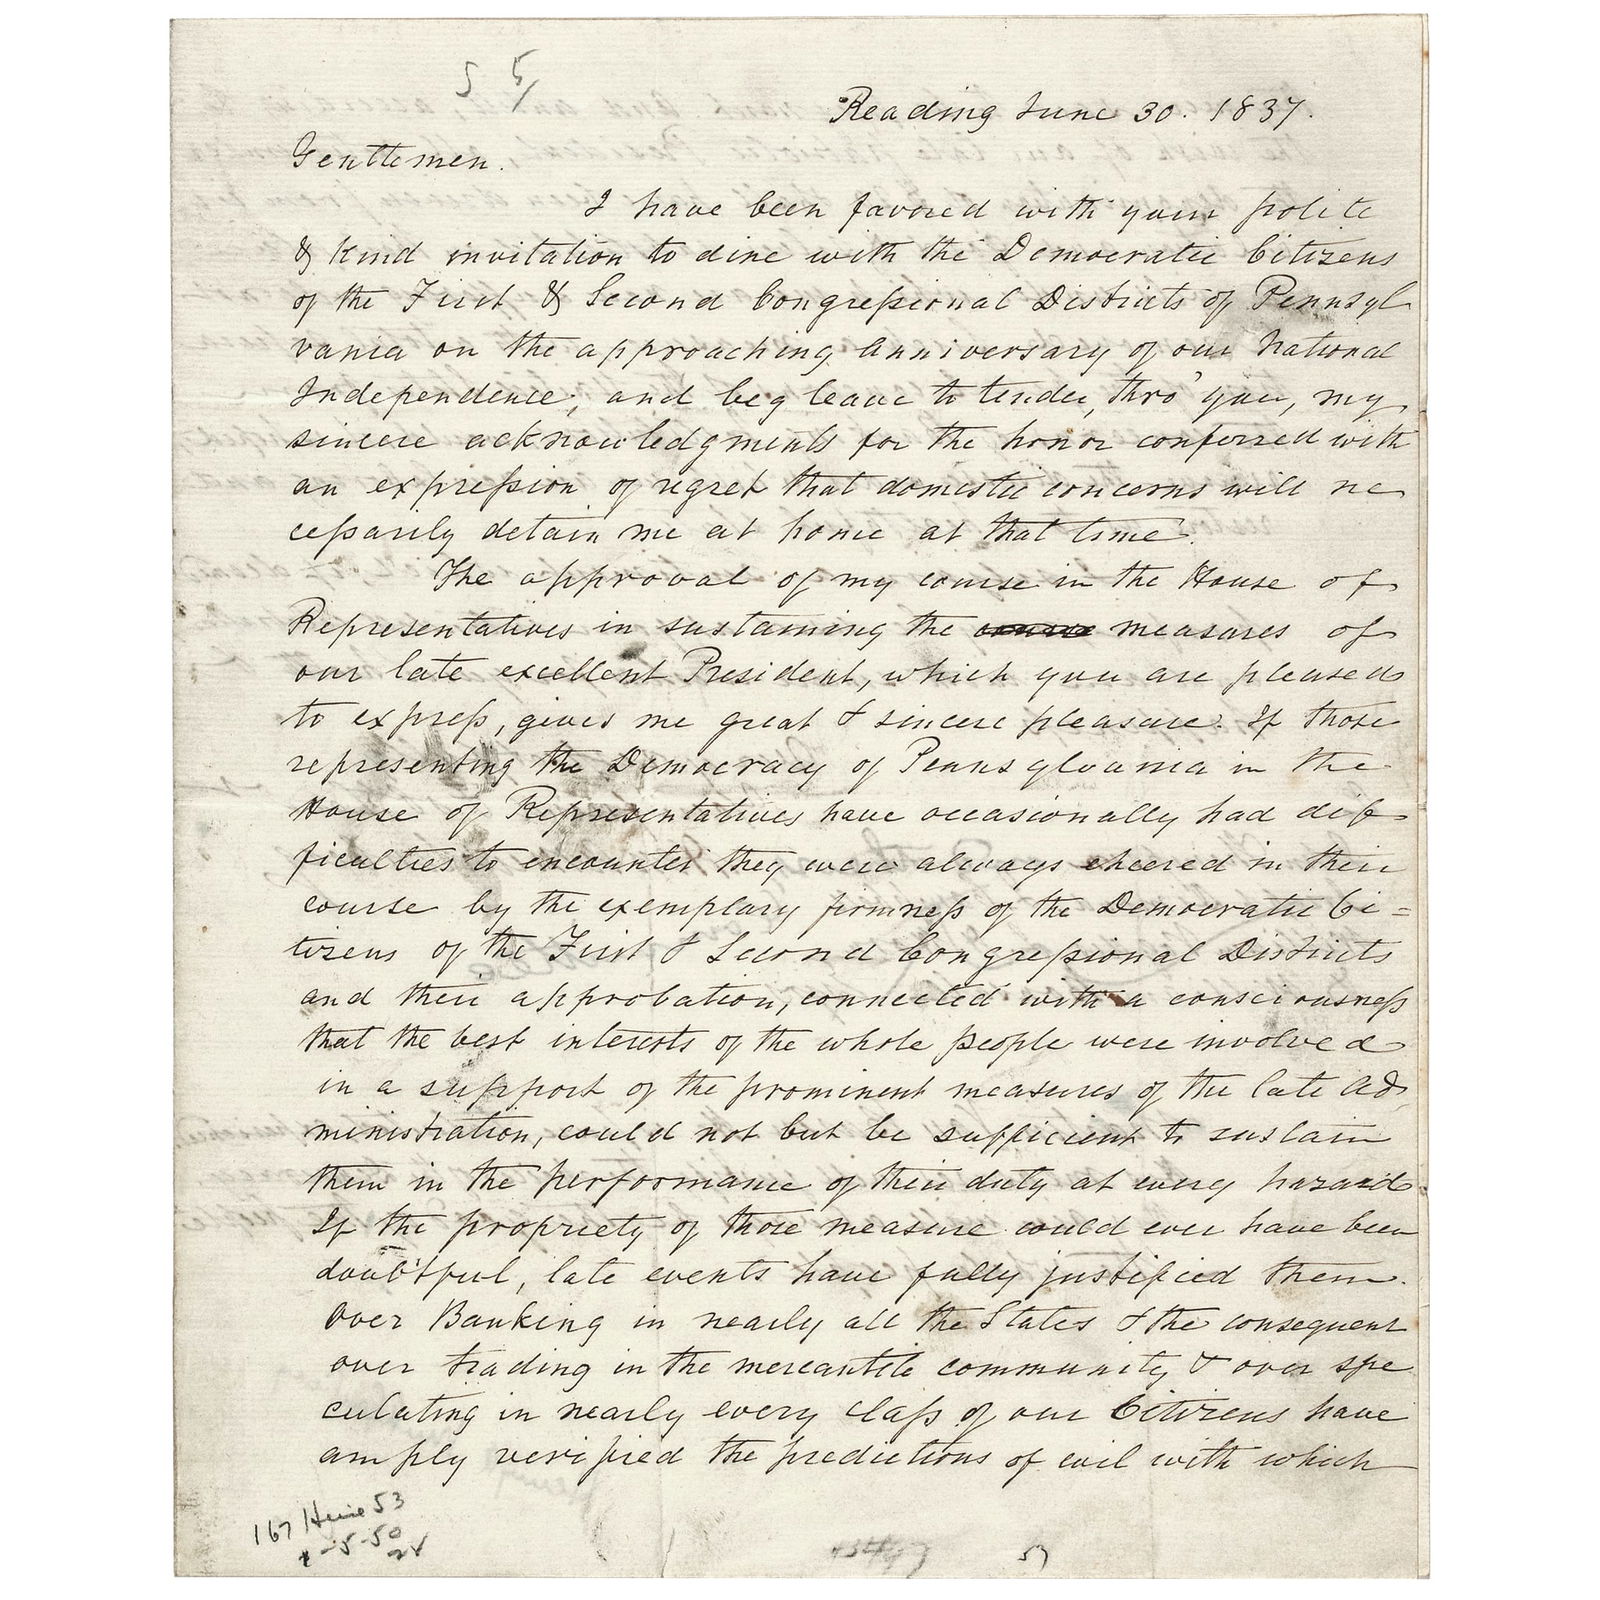 5 5/
Reading June 30. 1837.
Gentlemen.
I have been favored with your polite
& kind invitation to dine with the Democratic Citizens
of the First & Second Congressional Districts of Pennsyl
vania on the approaching Anniversary of our National
Independence, and beg leave to tender, thro' you, my
sincere acknowledgments for the honor conferred with
an expression of regret that domestic concerns will ne
cessarily detain me at home at that time.
The approval of my course in the House of
Representatives in sustaining the course measures of
our late excellent President, which you are pleased
to express, gives me great & sincere pleasure. If those
representing the Democracy of Pennsylvania in the
House of Representatives have occasionally had dif-
ficulties to encounter they were always cheered in their
course by the exemplary firmness of the Democratic Ci=
tizens of the First & Second Congressional Districts
and their approbation, connected with a consciousness
that the best interests of the whole people were involved
in a support of the prominent measures of the late Ad-
ministration, could not but be sufficient to sustain
them in the performance of their duty at every hazard.
If the propriety of those measure could ever have been
doubtful, late events have fully justified them.
Over Banking in nearly all the States & the consequent
over trading in the mercantile community & over spe
culating in nearly every class of our Citizens have
amply verified the predictions of evil with which
167 53
-5-50